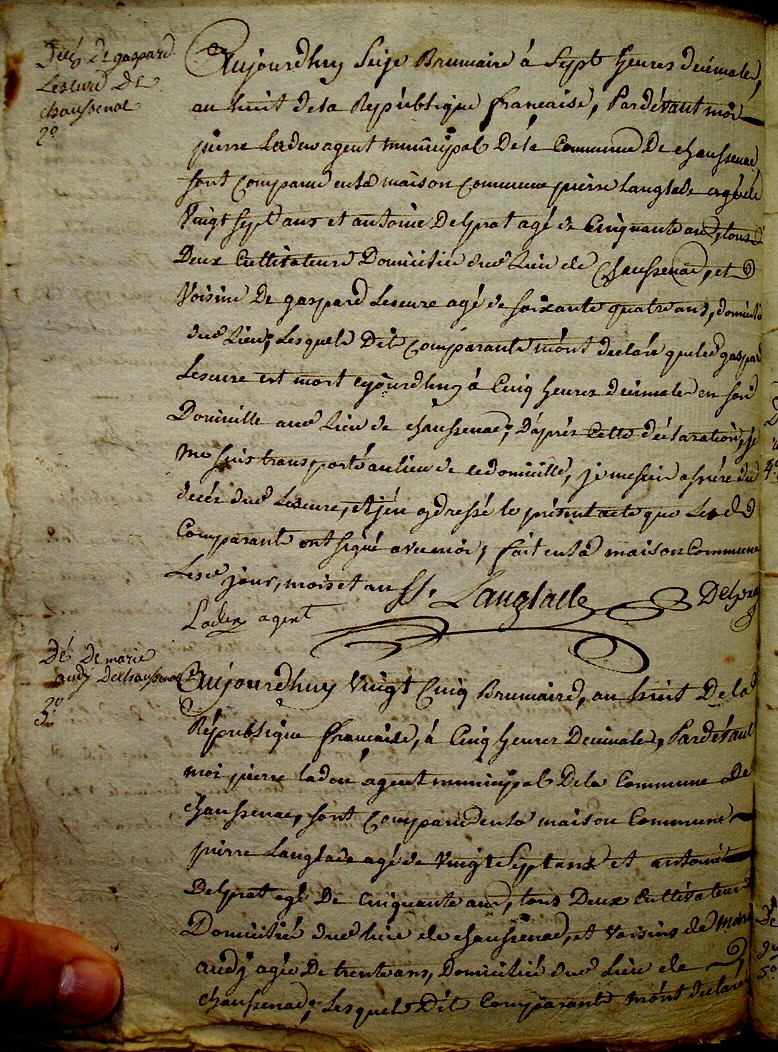 Décès de gaspard
Lescure De
chaussenac
2º
Aujourdhuy Seize Brumaire à Sept heures décimales,
au huit de la République française, Pardévant moi
pierre Ladou agent municipal De la Commune De chaussenac
sont comparu en la maison commune pierre Langlade agé de
Vingt sept ans et antoine Delprat agé de Cinquante ans, tous
Deux Cultivateurs Domiciliés dud. Lieu de Chaussenac, et
Voisins De gaspard Lescure agé de soixante quatre ans, domicilié
dud. Lieu; Lesquels Dit Comparants m'ont déclaré que led. gaspard
Lescure est mort cejourdhuy à Cinq heures décimales en son
Domicille aud. Lieu de chaussenac; D'après cette déclaration, je
me suis transporté au lieu de ce domicille, je me suis assuré du
décès dud. Lescure, et j'en ay dressé le présent acte que Les
Comparants ont signé avec moi; fait en la maison Commune
Lesd. jour, mois et an Langlade Delprat
Ladou agent
Dé. De marie
audy De chaussenac
2º
Aujourdhuy Vingt Cinq Brumaire, au huit De la
République française, à Cinq heures Décimales, Pardévant
moi pierre ladou agent municipal De la Commune De
chaussenac, sont Comparu en la maison Commune
pierre Langlade agé de Vingt Sept ans et antoine
Delprat agé De Cinquante ans, tous Deux Cultivateurs
Domiciliés dud. lieu de chaussenac, et Voisins de marie
audy agée De trente ans, Domiciliée dud. Lieu de
chaussenac; Lesquels Dit Comparants m'ont déclaré